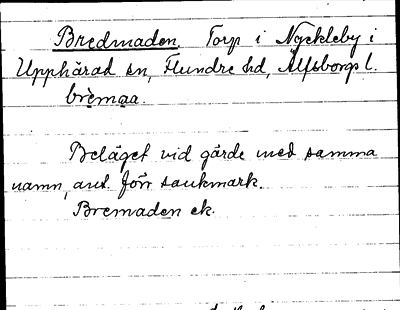 Bredmaden, Torp i Nyckleby i
Upphärad sn, Flundre hd, Älfsborgs l.
brèmaa.
Beläget vid gärde med samma
namn, ant. förr sankmark.
Bremaden ek.